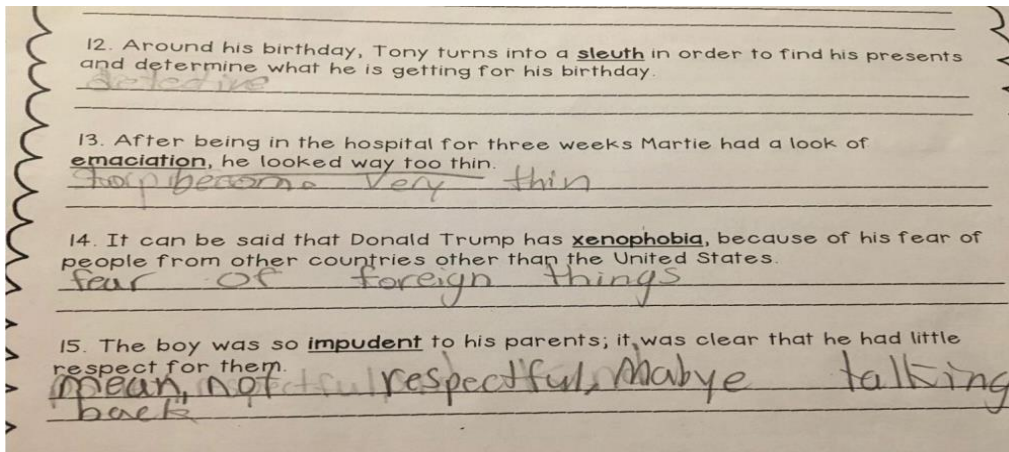 12. Around his birthday, Tony turns into a sleuth in order to find his presents
and determine what he is getting for his birthday.
detective
13. After being in the hospital for three weeks Martie had a look of
emaciation, he looked way too thin.
become very thin
14. It can be said that Donald Trump has xenophobia, because of his fear of
people from other countries other than the United States.
fear of foreign things
15. The boy was so impudent to his parents; it was clear that he had little
respect for them.
mean, not respectful, mabye talking
back